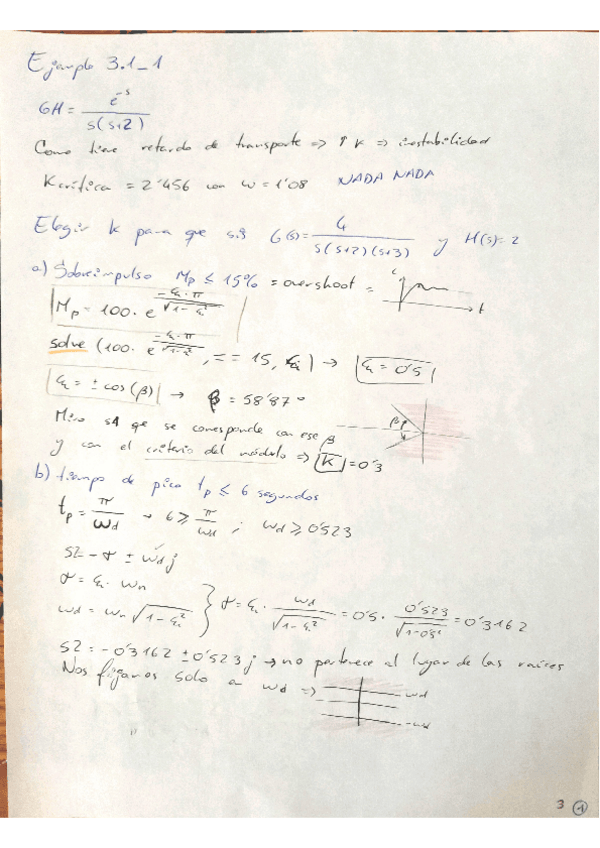 Ejemplo 3.1_1
GH = e^-s / s(s+2)
Como tiene retardo de transporte => ↑ K => inestabilidad
K crítica = 2'456 con ω = 1'08 NADA NADA
Elegir K para que si G(s) = 4 / s(s+2)(s+3) y H(s) = 2
a) Sobreimpulso Mp ≤ 15% = overshoot =
c
t
Mp = 100 · e^(-ξ·π / √1-ξ²)
solve (100 · e^(-ξ·π / √1-ξ²), == 15, ξ) → ξ = 0'5
ξ = ± cos(β) → β = 58'87°
Miro s1 que se corresponde con ese β
β
y con el criterio del módulo => K = 0'3
b) tiempo de pico tp ≤ 6 segundos
tp = π / ωd → 6 ≥ π / ωd ; ωd ≥ 0'523
s2 - σ ± ωd j
σ = ξ · ωn
ωd = ωn √1-ξ² } σ = ξ · ωd / √1-ξ² = 0'5 · 0'523 / √1-0'5² = 0'3162
s2 = - 0'3162 ± 0'523 j → no pertenece al lugar de las raíces
Nos fijamos solo a ωd =>
ωd
-ωd
3 1